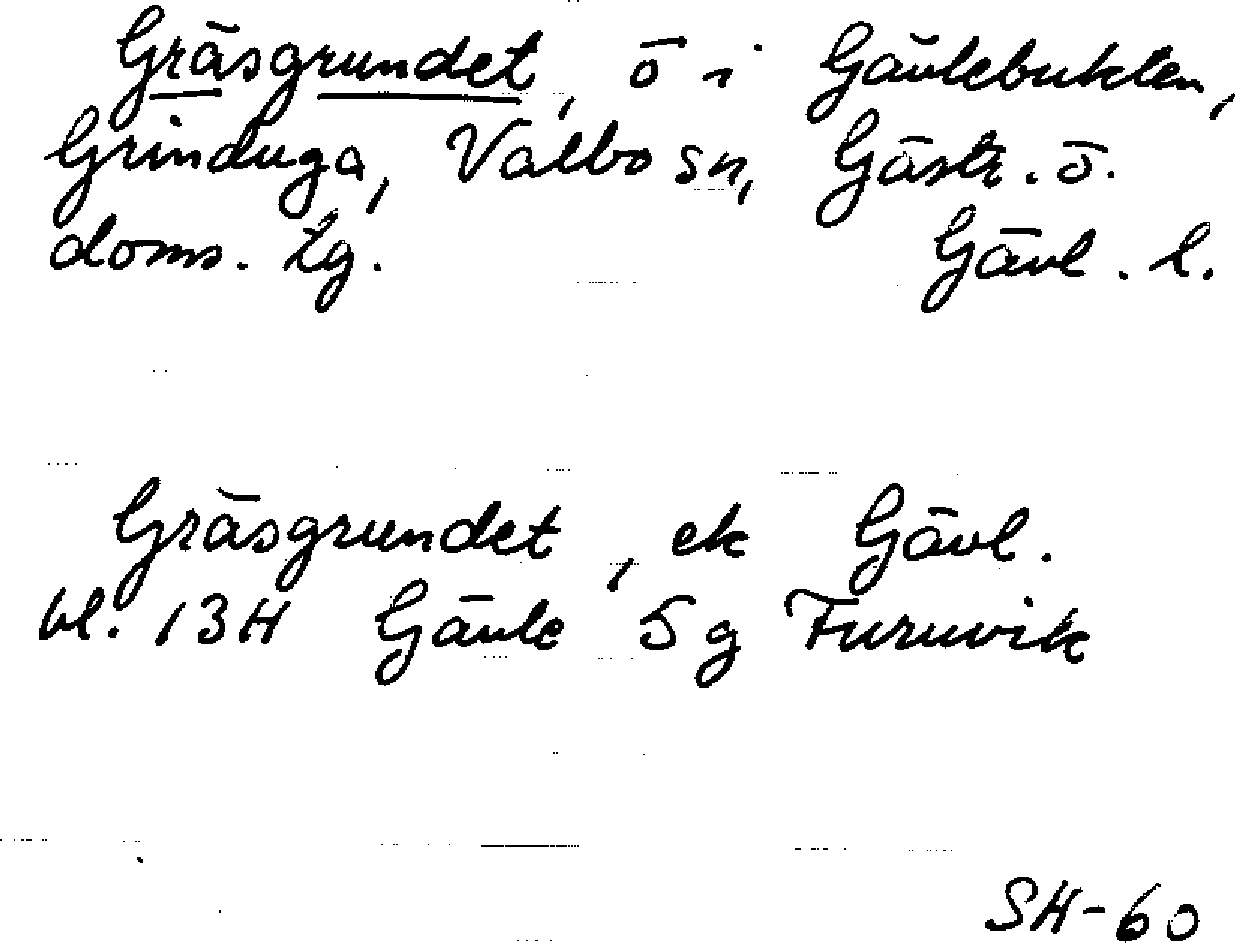 Gräsgrundet, ö i Gävlebukten,
Grinduga, Valbo sn, Gästr. ö.
doms. tg. Gävl. l.
Gräsgrundet, ek Gävl.
bl. 13H Gävle 5 g Furuvik
SH-60